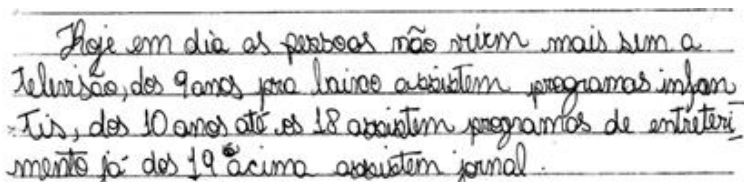 Hoje em dia as pessoas não vivem mais sem a
Televisão, dos 9 anos pra baixo assistem programas infan
tis, dos 10 anos até os 18 assistem programas de entreteri_
mento já dos 19 acima assistem jornal.